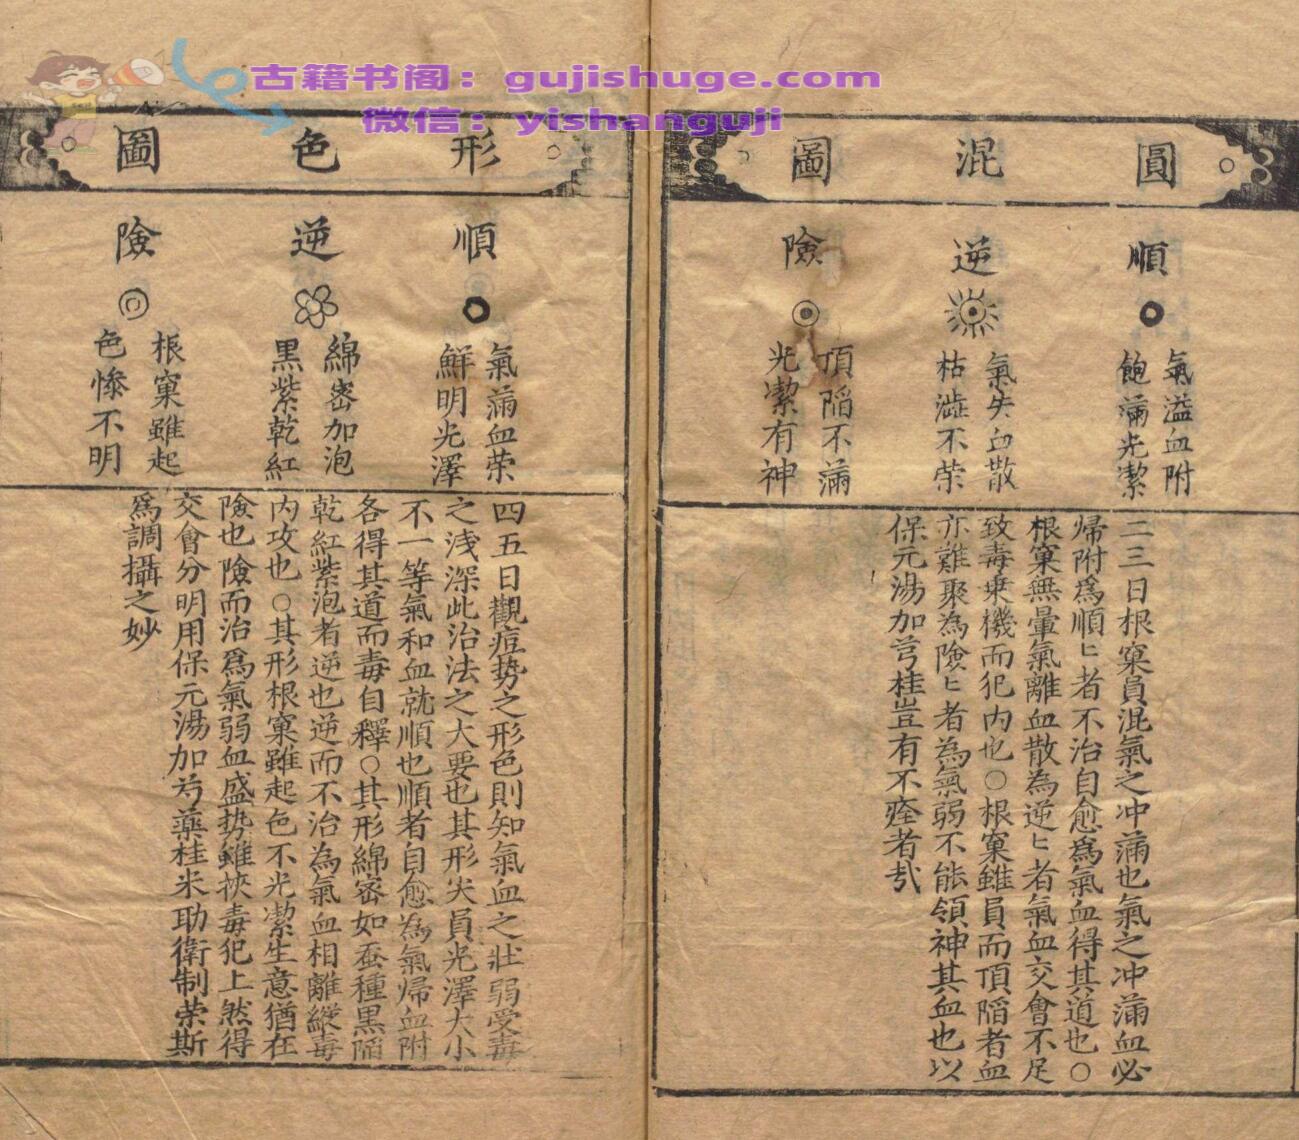 古籍书阁：gujishuge.com
微信：yishanguji
圓混圖
順
氣溢血附
飽滿光潔
逆
氣失血散
枯澁不荣
險
頂陷不滿
光潔有神
二三日根窠員混氣之冲滿也氣之冲滿血必
帰附爲順〻者不治自愈爲氣血得其道也○
根窠無暈氣離血散為逆〻者氣血交會不足
致毒乗機而犯内也○根窠雖員而頂陷者血
亦難聚為險〻者為氣弱不能領神其血也以
保元湯加芎桂豈有不痊者㢤
形色圖
順
氣滿血荣
鮮明光澤
逆
綿密加泡
黒紫乾紅
險
根窠雖起
色惨不明
四五日觀痘势之形色則知氣血之壯弱受毒
之浅深此治法之大要也其形尖員光澤大小
不一等氣和血就順也順者自愈為氣帰血附
各得其道而毒自釋○其形綿密如蚕種黒陷
乾紅紫泡者逆也逆而不治為氣血相離縱毒
内攻也○其形根窠雖起色不光潔生意猶在
險也險而治爲氣弱血盛势雖挾毒犯上然得
交會分明用保元湯加芍藥桂米助衛制荣斯
爲調攝之妙